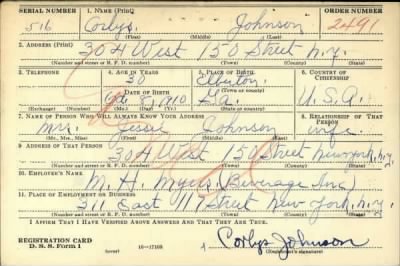 SERIAL NUMBER 1. NAME (Print) ORDER NUMBER
516 Corlys Johnson 2491
(First) (Middle) (Last)
2. ADDRESS (Print)
304 West 150 Street N.Y.
(Number and street or R. F. D. number) (Town) (County) (State)
3. TELEPHONE 4. AGE IN YEARS 5. PLACE OF BIRTH 6. COUNTRY OF CITIZENSHIP
30 Elberton
DATE OF BIRTH (Town or county)
1910 Ga. U.S.A.
(Exchange) (Number) (Mo.) (Day) (Yr.) (State or country)
7. NAME OF PERSON WHO WILL ALWAYS KNOW YOUR ADDRESS 8. RELATIONSHIP OF THAT PERSON
Mrs. Jessie Johnson wife
(Mr., Mrs., Miss) (First) (Middle) (Last)
9. ADDRESS OF THAT PERSON
304 West 150 Street New York, N.Y.
(Number and street or R. F. D. number) (Town) (County) (State)
10. EMPLOYER'S NAME
M. H. Myers (Beverage Inc)
11. PLACE OF EMPLOYMENT OR BUSINESS
311 East 117 Street New York, N.Y.
(Number and street or R. F. D. number) (Town) (County) (State)
I AFFIRM THAT I HAVE VERIFIED ABOVE ANSWERS AND THAT THEY ARE TRUE.
REGISTRATION CARD
D. S. S. Form 1 16—17105 Corlys Johnson
(Registrant's signature)